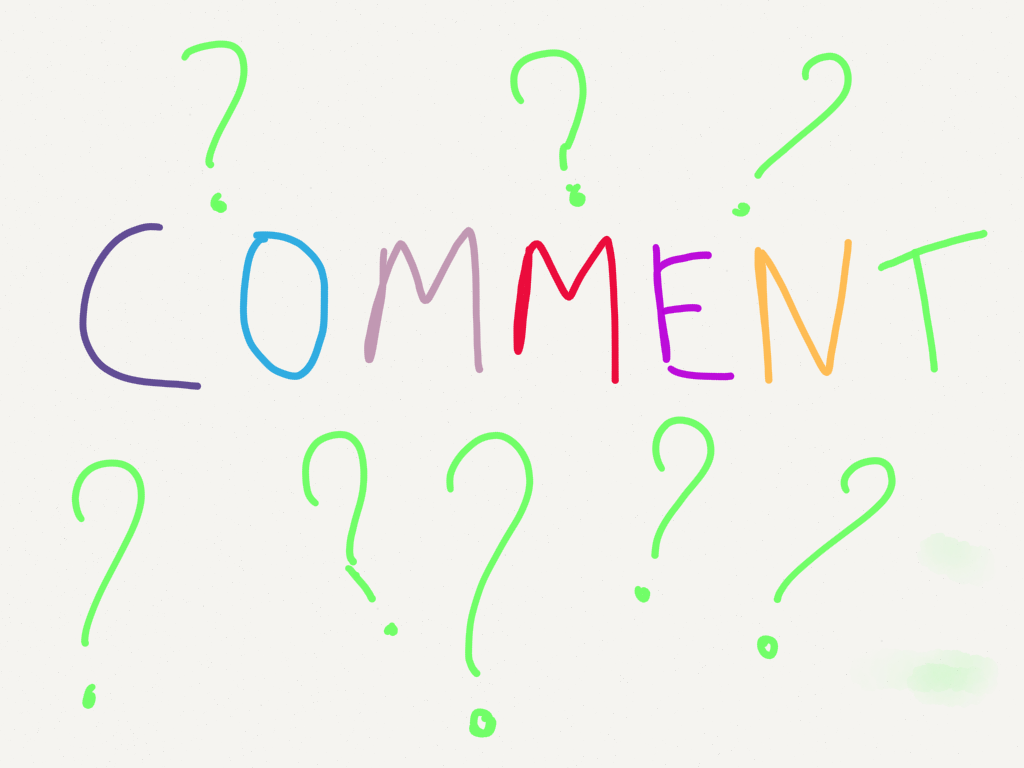 ? ? ?
COMMENT
? ? ? ? ?